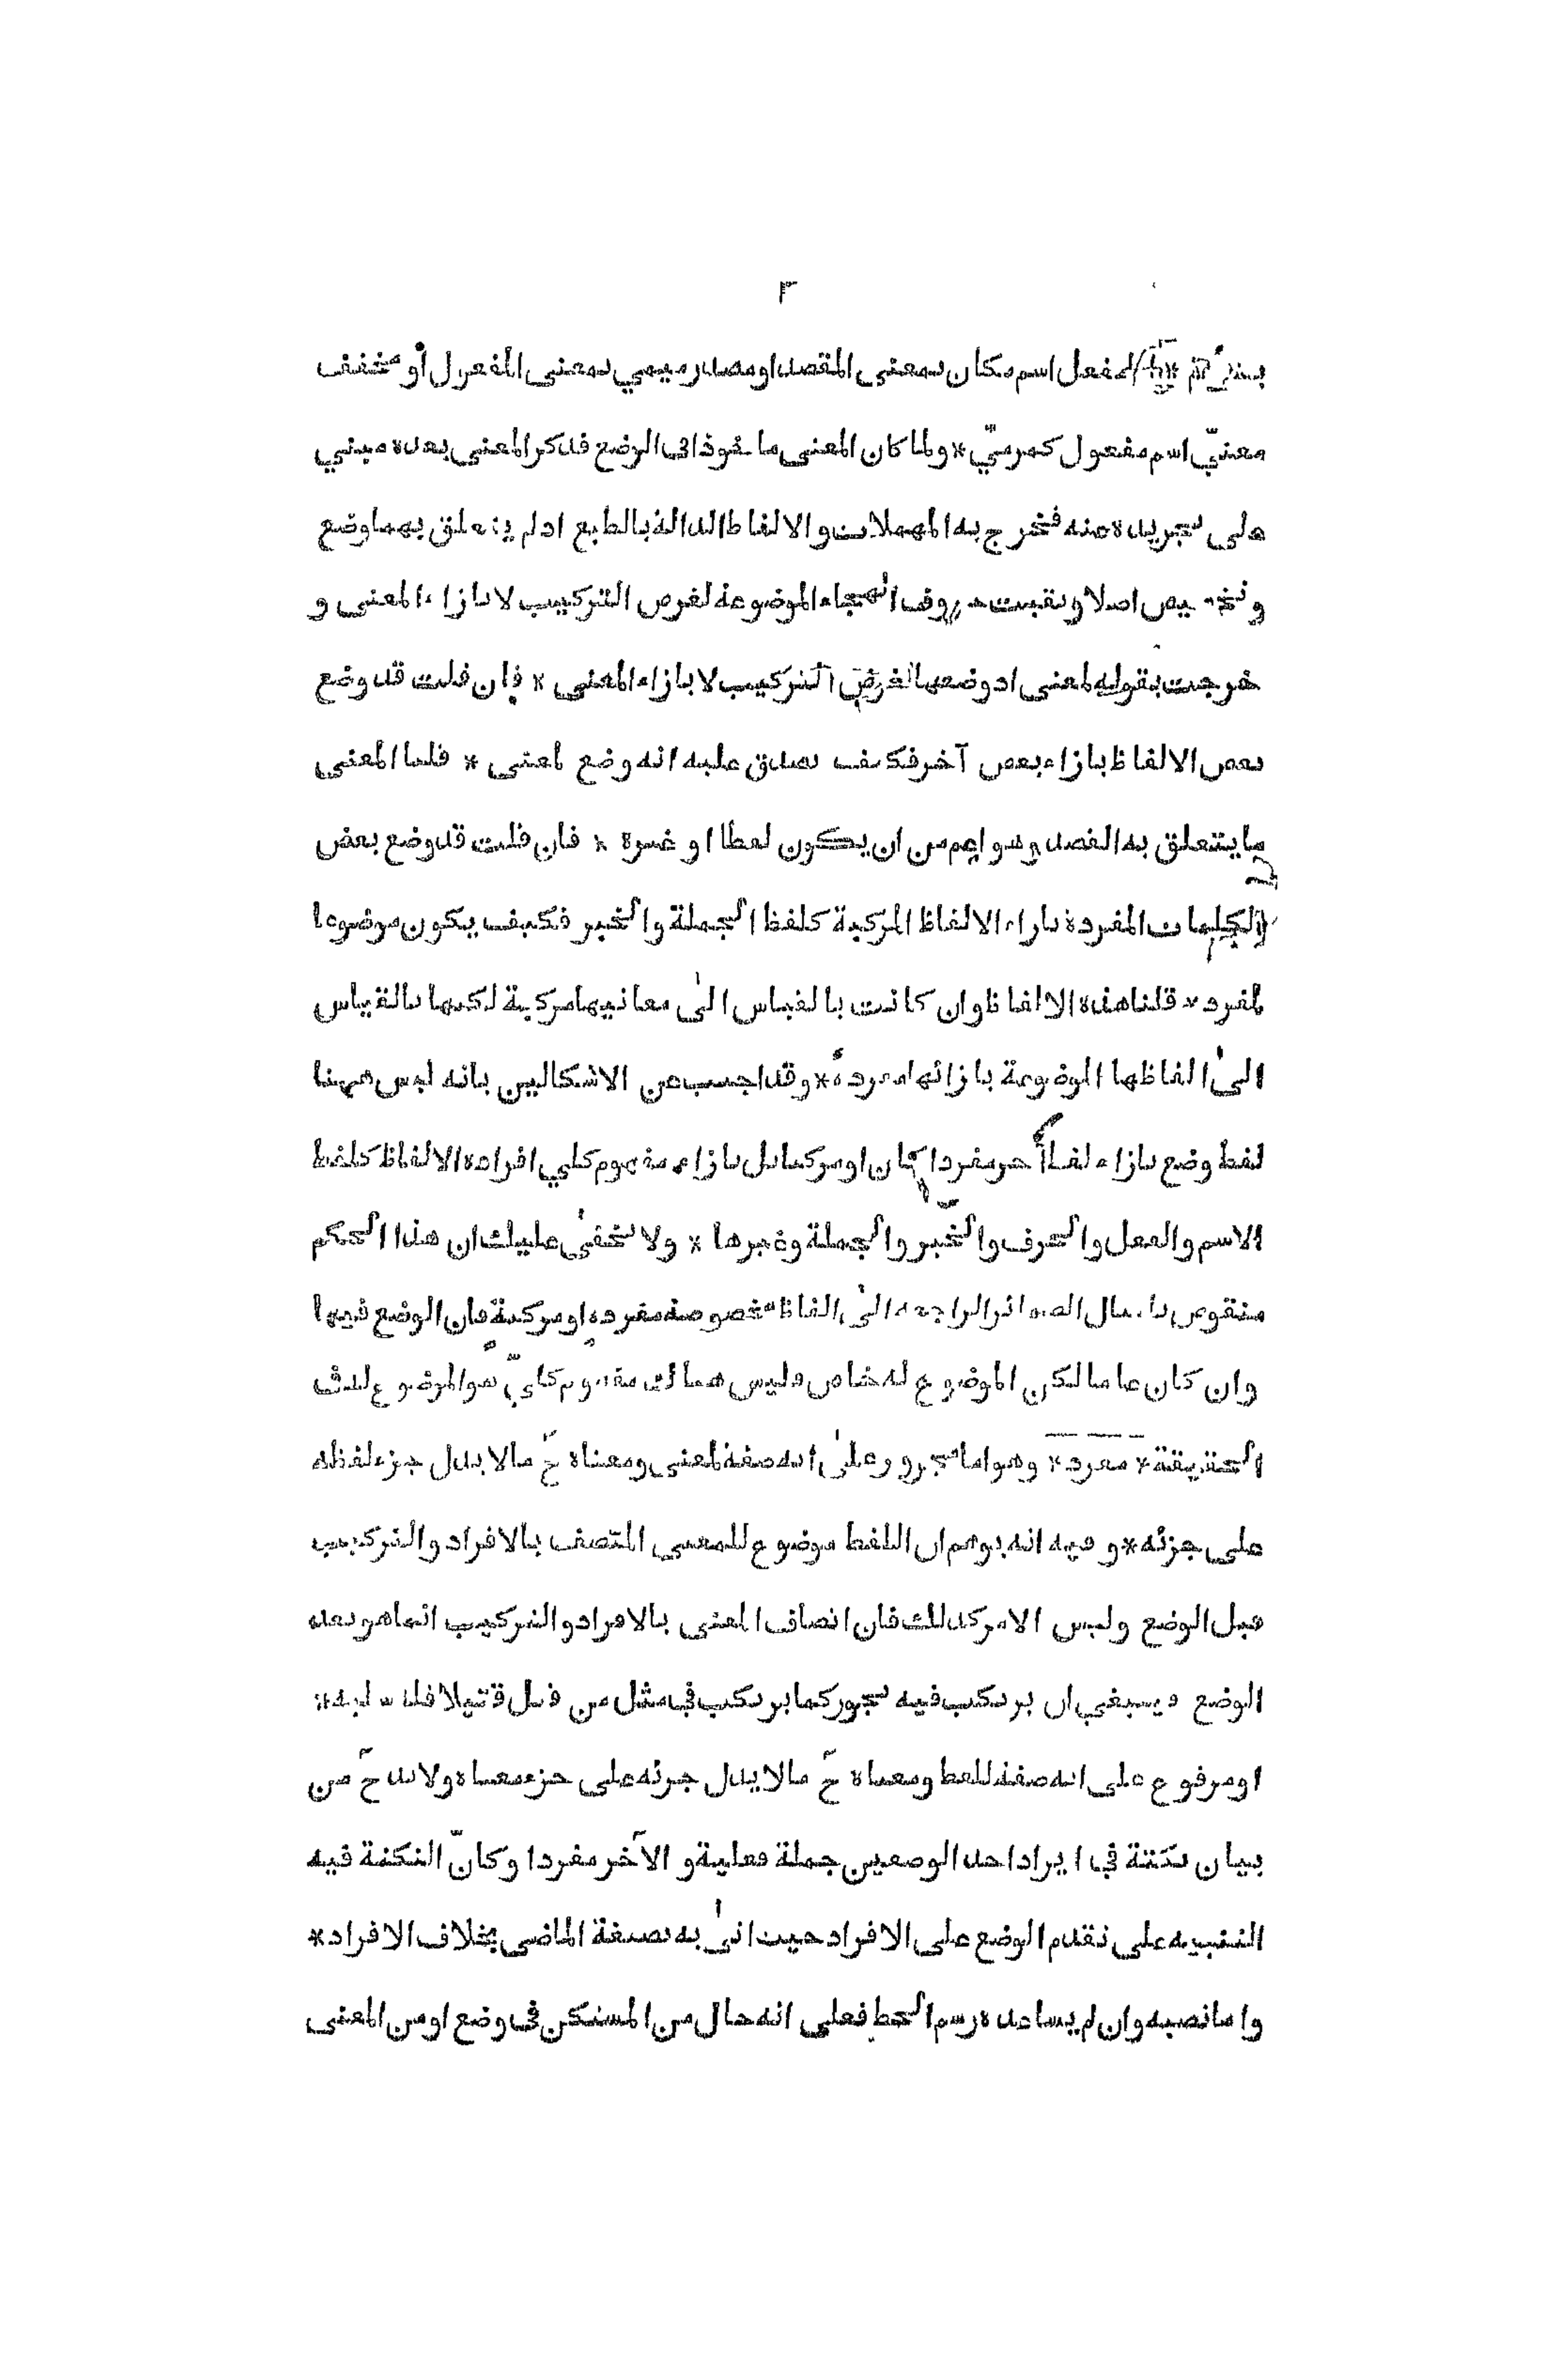 ٣
اما مفعل اسم مكان بمعنى المقصد او مصدر ميمي بمعنى المفعول أو مخفف
معنيّ اسم مفعول كمرميّ * ولما كان المعنى ماخوذا فى الوضع فذكر المعنى بعده مبني
على تجريده عنه فخرج به المهملات والالفاظ الدالة بالطبع اذ لم يتعلق بهما وضع
وتخصيص اصلا وبقيت حروف الهجاء الموضوعة لغرض التركيب لا بازاء المعنى و
خرجت بقوله لمعنى اذ وضعها لغرض التركيب لا بازاء المعنى * فان قلت قد وضع
بعض الالفاظ بازاء بعض آخر فكيف يصدق عليه انه وضع لمعنى * قلنا المعنى
ما يتعلق به القصد وهو اعم من ان يكون لفظا او غيره * فان قلت قد وضع بعض
الكلمات المفردة بازاء الالفاظ المركبة كلفظ الجملة والخبر فكيف يكون موضوعا
لمفرد * قلنا هذه الالفاظ وان كانت بالقياس الىٰ معانيها مركبة لكنها بالقياس
الىٰ الفاظها الموضوعة بازائها مفردة * وقد اجيب عن الاشكالين بانه ليس ههنا
لفظ وضع بازاء لفظ آخر مفردا كان او مركبا بل بازاء مفهوم كلي افراده الالفاظ كلفظ
الاسم والفعل والحرف والخبر والجملة وغيرها * ولا يخفىٰ عليك ان هذا الحكم
منقوض بامثال الضمائر الراجعة الىٰ الفاظ مخصوصة مفردة او مركبة فان الوضع فيها
وان كان عاما لكن الموضوع له خاص فليس هناك مفهوم كليّ هو الموضوع له فى
الحقيقة * مفرد * وهو اما مجرور علىٰ انه صفة لمعنى ومعناه حٓ مالا يدل جزء لفظه
على جزئه * وفيه انه يوهم ان اللفظ موضوع للمعنى المتصف بالافراد والتركيب
قبل الوضع وليس الامر كذلك فان اتصاف المعنى بالافراد والتركيب انما هو بعد
الوضع فينبغي ان يرتكب فيه تجوز كما يرتكب في مثل من قتل قتيلا فله سلبه *
او مرفوع على انه صفة للفظ ومعناه حٓ مالا يدل جزئه على جزء معناه ولا بد حٓ من
بيان نكتة في ايراد احد الوصفين جملة فعلية والآخر مفردا وكانّ النكتة فيه
التنبيه على تقدم الوضع على الافراد حيث اتىٰ به بصيغة الماضى بخلاف الافراد *
واما نصبه وان لم يساعده رسم الخط فعلى انه حال من المستكن فى وضع او من المعنى